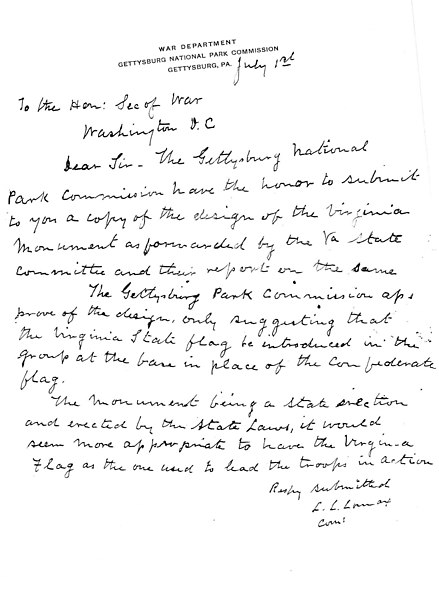 WAR DEPARTMENT
GETTYSBURG NATIONAL PARK COMMISSION
GETTYSBURG, PA. July 1st
To the Hon: Sec of War
Washington D.C
Dear Sir - The Gettysburg National
Park Commission have the honor to submit
to you a copy of the design of the Virginia
Monument as forwarded by the Va State
Committee and their report on the same
The Gettysburg Park Commission ap-
prove of the design, only suggesting that
the Virginia State flag be introduced in the
group at the base in place of the Confederate
flag.
The Monument being a State erection
and erected by the State Laws, it would
seem more appropriate to have the Virginia
Flag as the one used to lead the troops in action
Respy submitted
L. L. Lomax
Com: